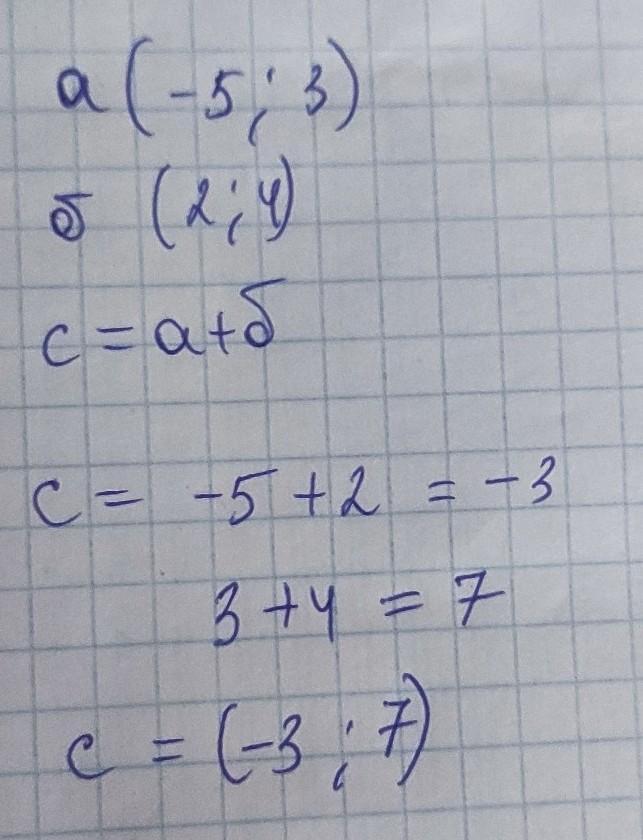 а (-5; 3)
б (2; 4)
с = а+б
с = -5 + 2 = -3
3 + 4 = 7
с = (-3 ; 7)